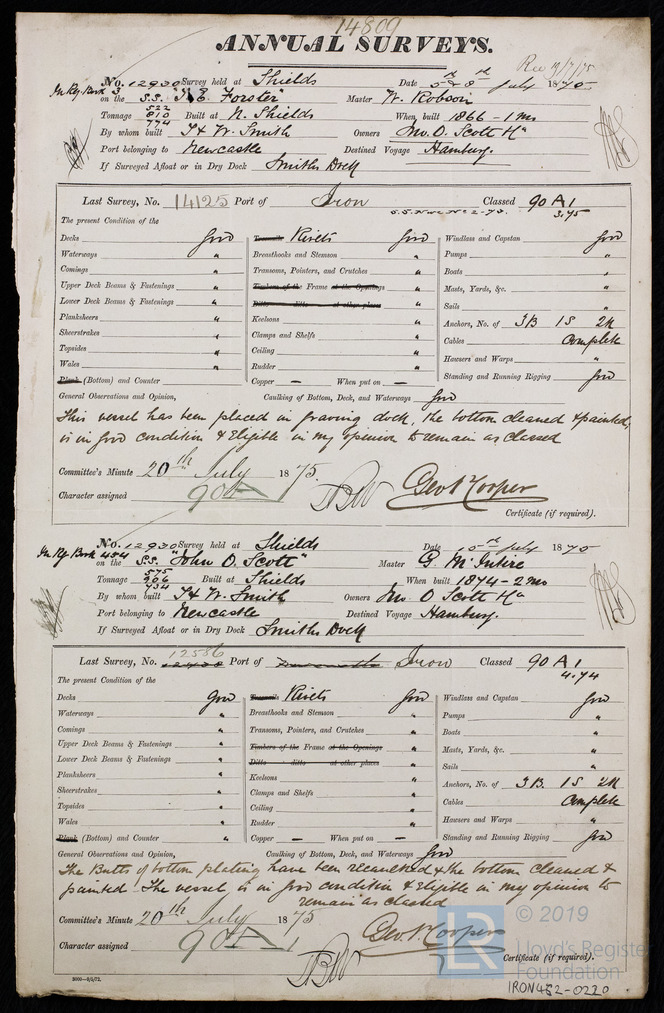 14809
ANNUAL SURVEYS.
No. 12930 Survey held at Shields Date 5th & 8th July 1875
In Rg. Book 3 on the S.S. "T. E. Forster" Master W. Robson
Tonnage 522 810 774 Built at N. Shields When built 1866 - 1 Mo
By whom built T & W. Smith Owners Jno. O. Scott
Port belonging to Newcastle Destined Voyage Hamburg.
If Surveyed Afloat or in Dry Dock Smiths Dock
Last Survey, No. 14125 Port of Iron Classed 90 A1
S.S. Nwc No 2-73. 3.75
The present Condition of the
Decks Good Rivets Good Windlass and Capstan Good
Waterways " Breasthooks and Stemson " Pumps "
Comings " Transoms, Pointers, and Crutches " Boats "
Upper Deck Beams & Fastenings " Timbers of the Frame at the Openings " Masts, Yards, &c. "
Lower Deck Beams & Fastenings " Ditto ditto at other places " Sails "
Planksheers " Keelsons " Anchors, No. of 3B 1S 2K
Sheerstrakes " Clamps and Shelfs " Cables Complete
Topsides " Ceiling " Hawsers and Warps "
Wales " Rudder " Standing and Running Rigging Good
Plank (Bottom) and Counter " Copper — When put on —
General Observations and Opinion, Caulking of Bottom, Deck, and Waterways Good
This vessel has been placed in graving dock, the bottom cleaned & painted,
is in good condition & Eligible in my opinion to remain as classed
Committee's Minute 20th July 1875.
Character assigned 90A1 Geo. N. Cooper
Certificate (if required).
No. 12930 Survey held at Shields Date 10th July 1875
In Rg. Book 484 on the S.S. "John O. Scott" Master G. McIntire
Tonnage 575 906 734 Built at Shields When built 1874 - 2 Mo
By whom built T & W. Smith Owners Jno. O Scott
Port belonging to Newcastle Destined Voyage Hamburg.
If Surveyed Afloat or in Dry Dock Smiths Dock
12586
Last Survey, No. Port of Iron Classed 90 A1
4.74
The present Condition of the
Decks Good Rivets Good Windlass and Capstan Good
Waterways " Breasthooks and Stemson " Pumps "
Comings " Transoms, Pointers, and Crutches " Boats "
Upper Deck Beams & Fastenings " Timbers of the Frame at the Openings " Masts, Yards, &c. "
Lower Deck Beams & Fastenings " Ditto ditto at other places " Sails "
Planksheers " Keelsons " Anchors, No. of 3B. 1S 2K
Sheerstrakes " Clamps and Shelfs " Cables Complete
Topsides " Ceiling " Hawsers and Warps "
Wales " Rudder " Standing and Running Rigging Good
Plank (Bottom) and Counter " Copper — When put on —
General Observations and Opinion, Caulking of Bottom, Deck, and Waterways Good
The Butts of bottom plating have been recaulked & the bottom cleaned &
painted. The vessel is in good condition & Eligible in my opinion to
remain as classed
Committee's Minute 20th July 1875
Character assigned 90A1 Geo. N. Cooper
Certificate (if required).
LR © 2019
Lloyd's Register
Foundation
IRON482-0220